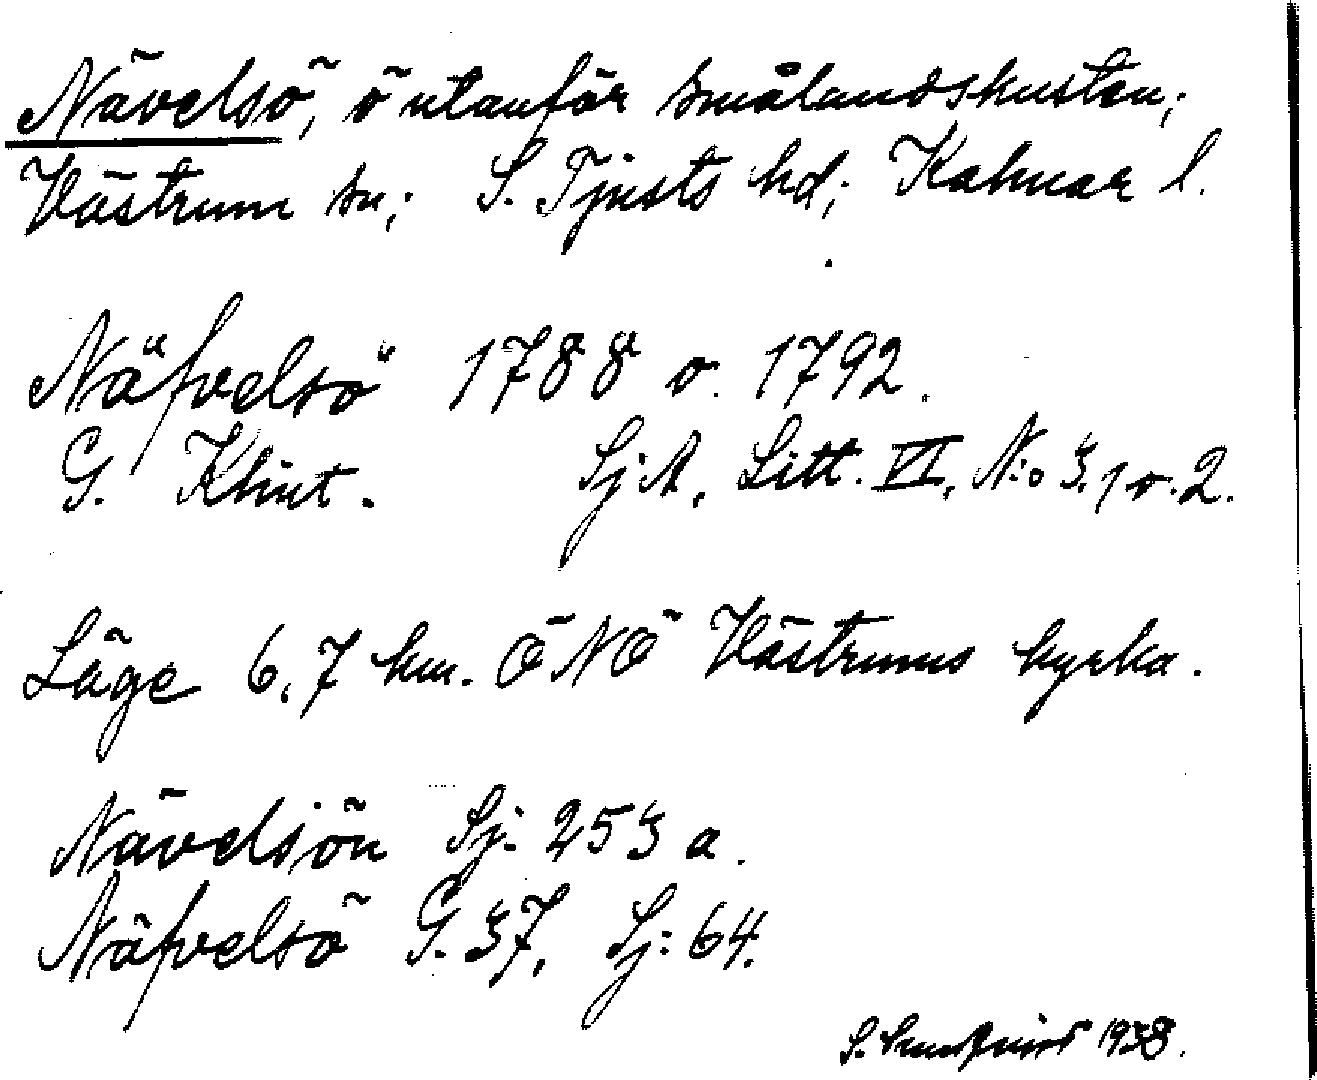 Nävelsö, ö utanför Smålandskusten;
Västrum sn; S. Tjusts hd; Kalmar l.
Näfvelsö 1788 o. 1792.
G. Klint. SjA, Litt. VI, N:o 3, 1 o. 2.
Läge 6,7 km. ÖNÖ Västrums kyrka.
Nävelsjön Sj. 253 a.
Näfvelsö G. 37, Sj: 64.
S. 1938.